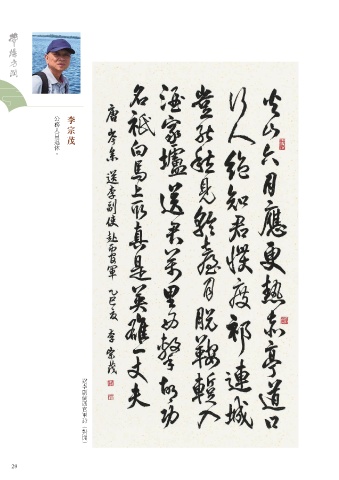 李宗茂
公務人員退休。
火山六月應更熱赤亭道口
行人絕知君慣度祁連城
豈能愁見輪臺月脫鞍暫入
酒家壚送君萬里西擊胡功
名祗向馬上取真是英雄一丈夫
唐岑參送李副使赴西官軍 乙巳夏 李宗茂
29